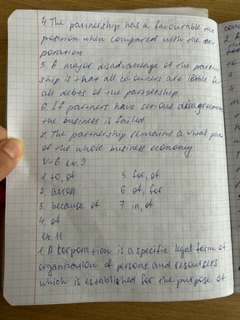 4. The partnership has a favourable
position when compared with the
poration
5. A major disadvantage of the
ship is that all co owners are liable for
all debts of the partnership.
6. If partners have serious
the business is failed.
7. The partnership remains a vital part
of the whole business economy.
ex. 9
1. to, of 5 for, of
2. across 6 of, for
3. because of 7. in, of
4. of
ex. 11
1. A corporation is a specific legal form of
organisation of persons and resources
which is established for the purpose of